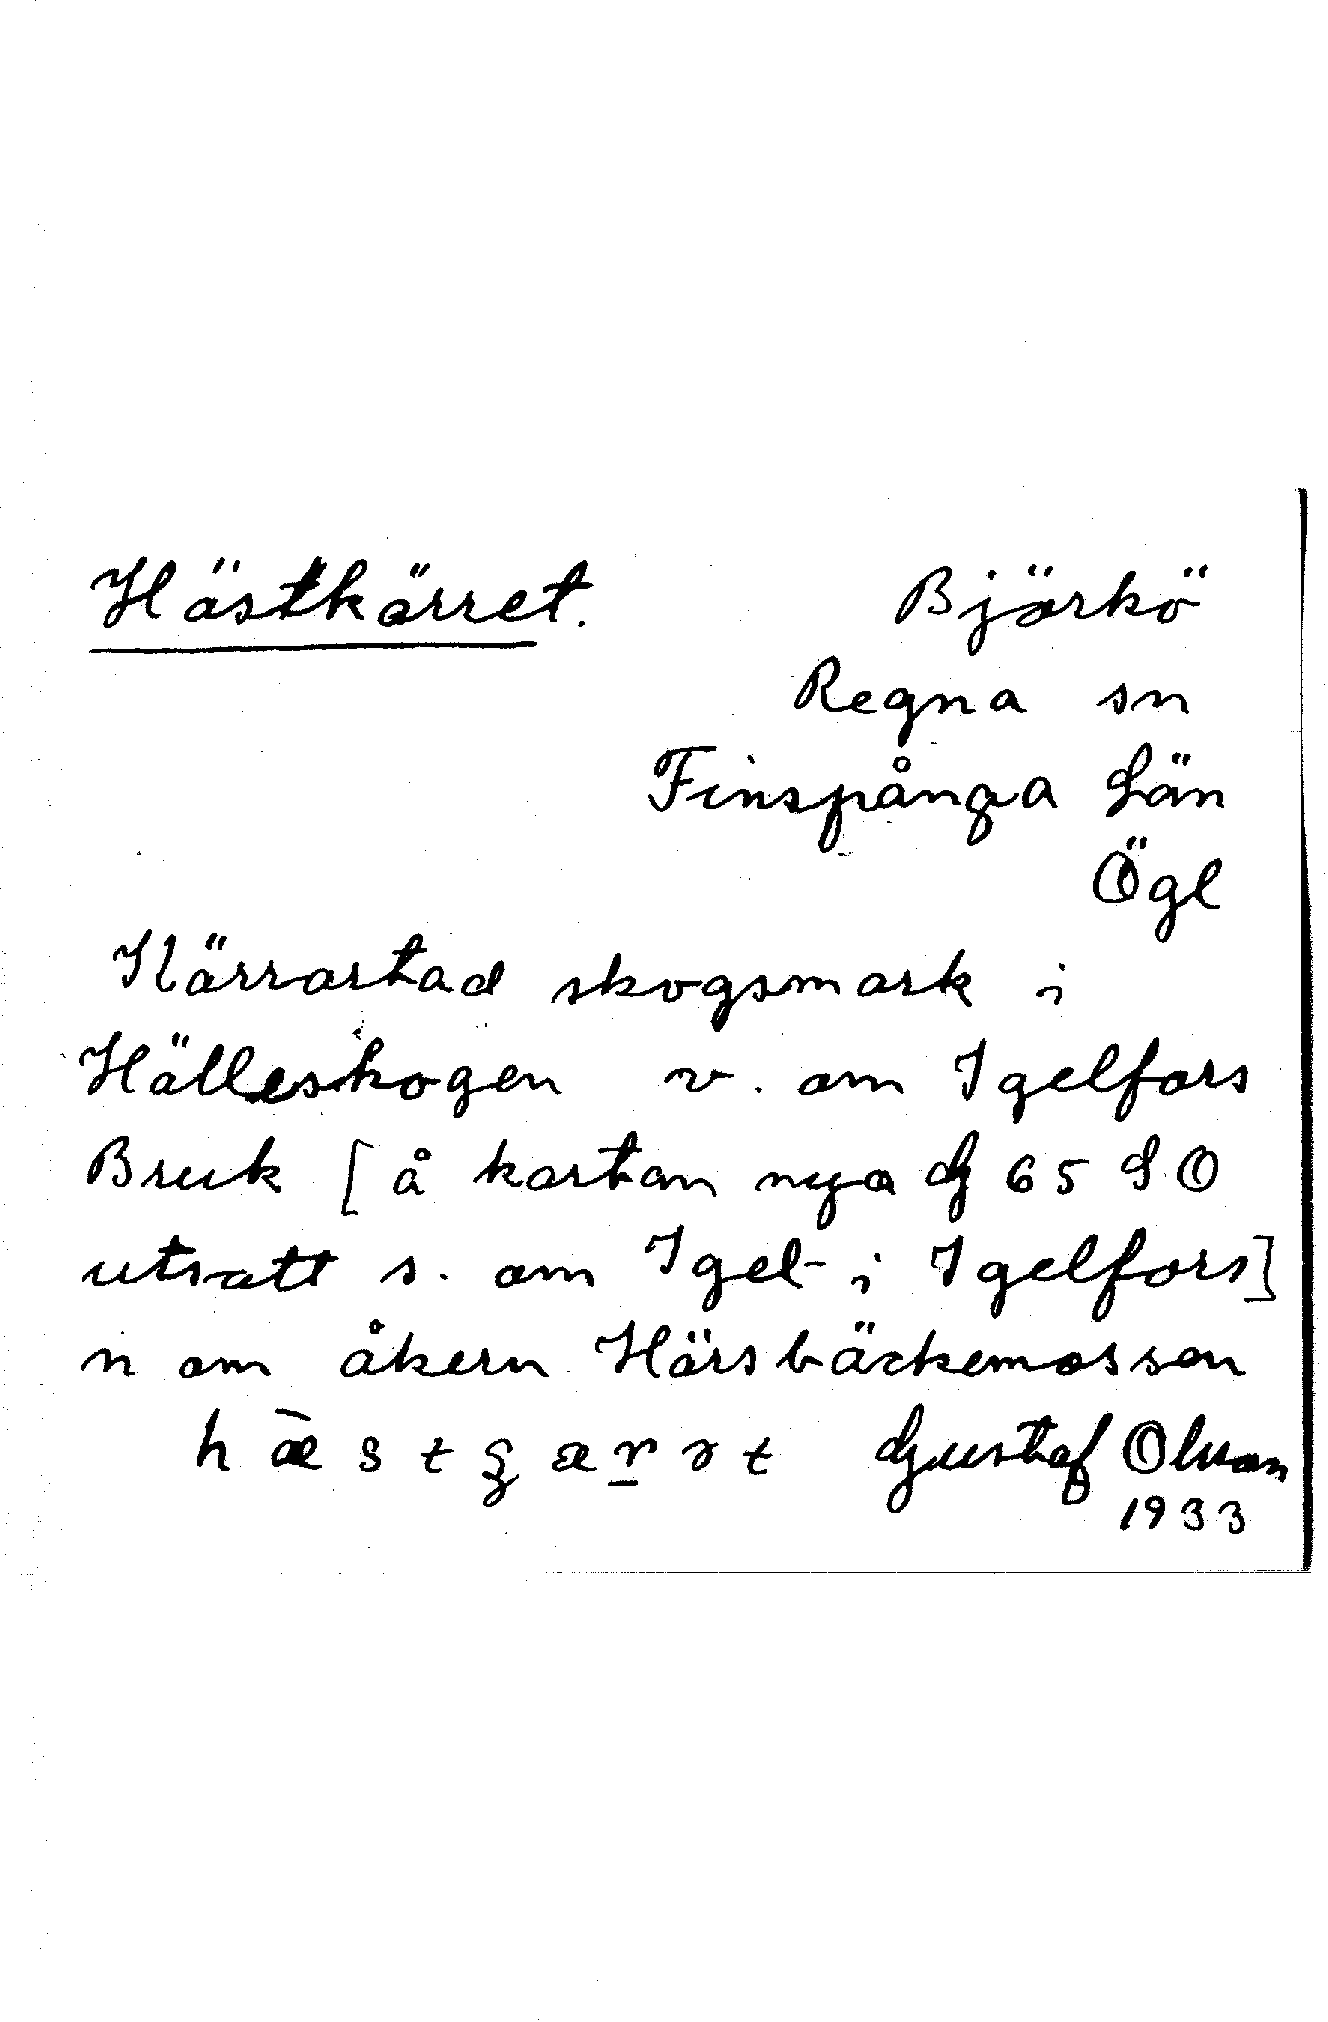 Hästkärret.
Björkö
Regna sn
Finspånga Län
Ögl
Kärrartad skogsmark i
Hälleskogen v. om Igelfors
Bruk [å kartan nya G 65 S O
utsatt s. om Igel- i Igelfors]
n om åkern Härsbäckemossen
Gustaf Olsson
1933